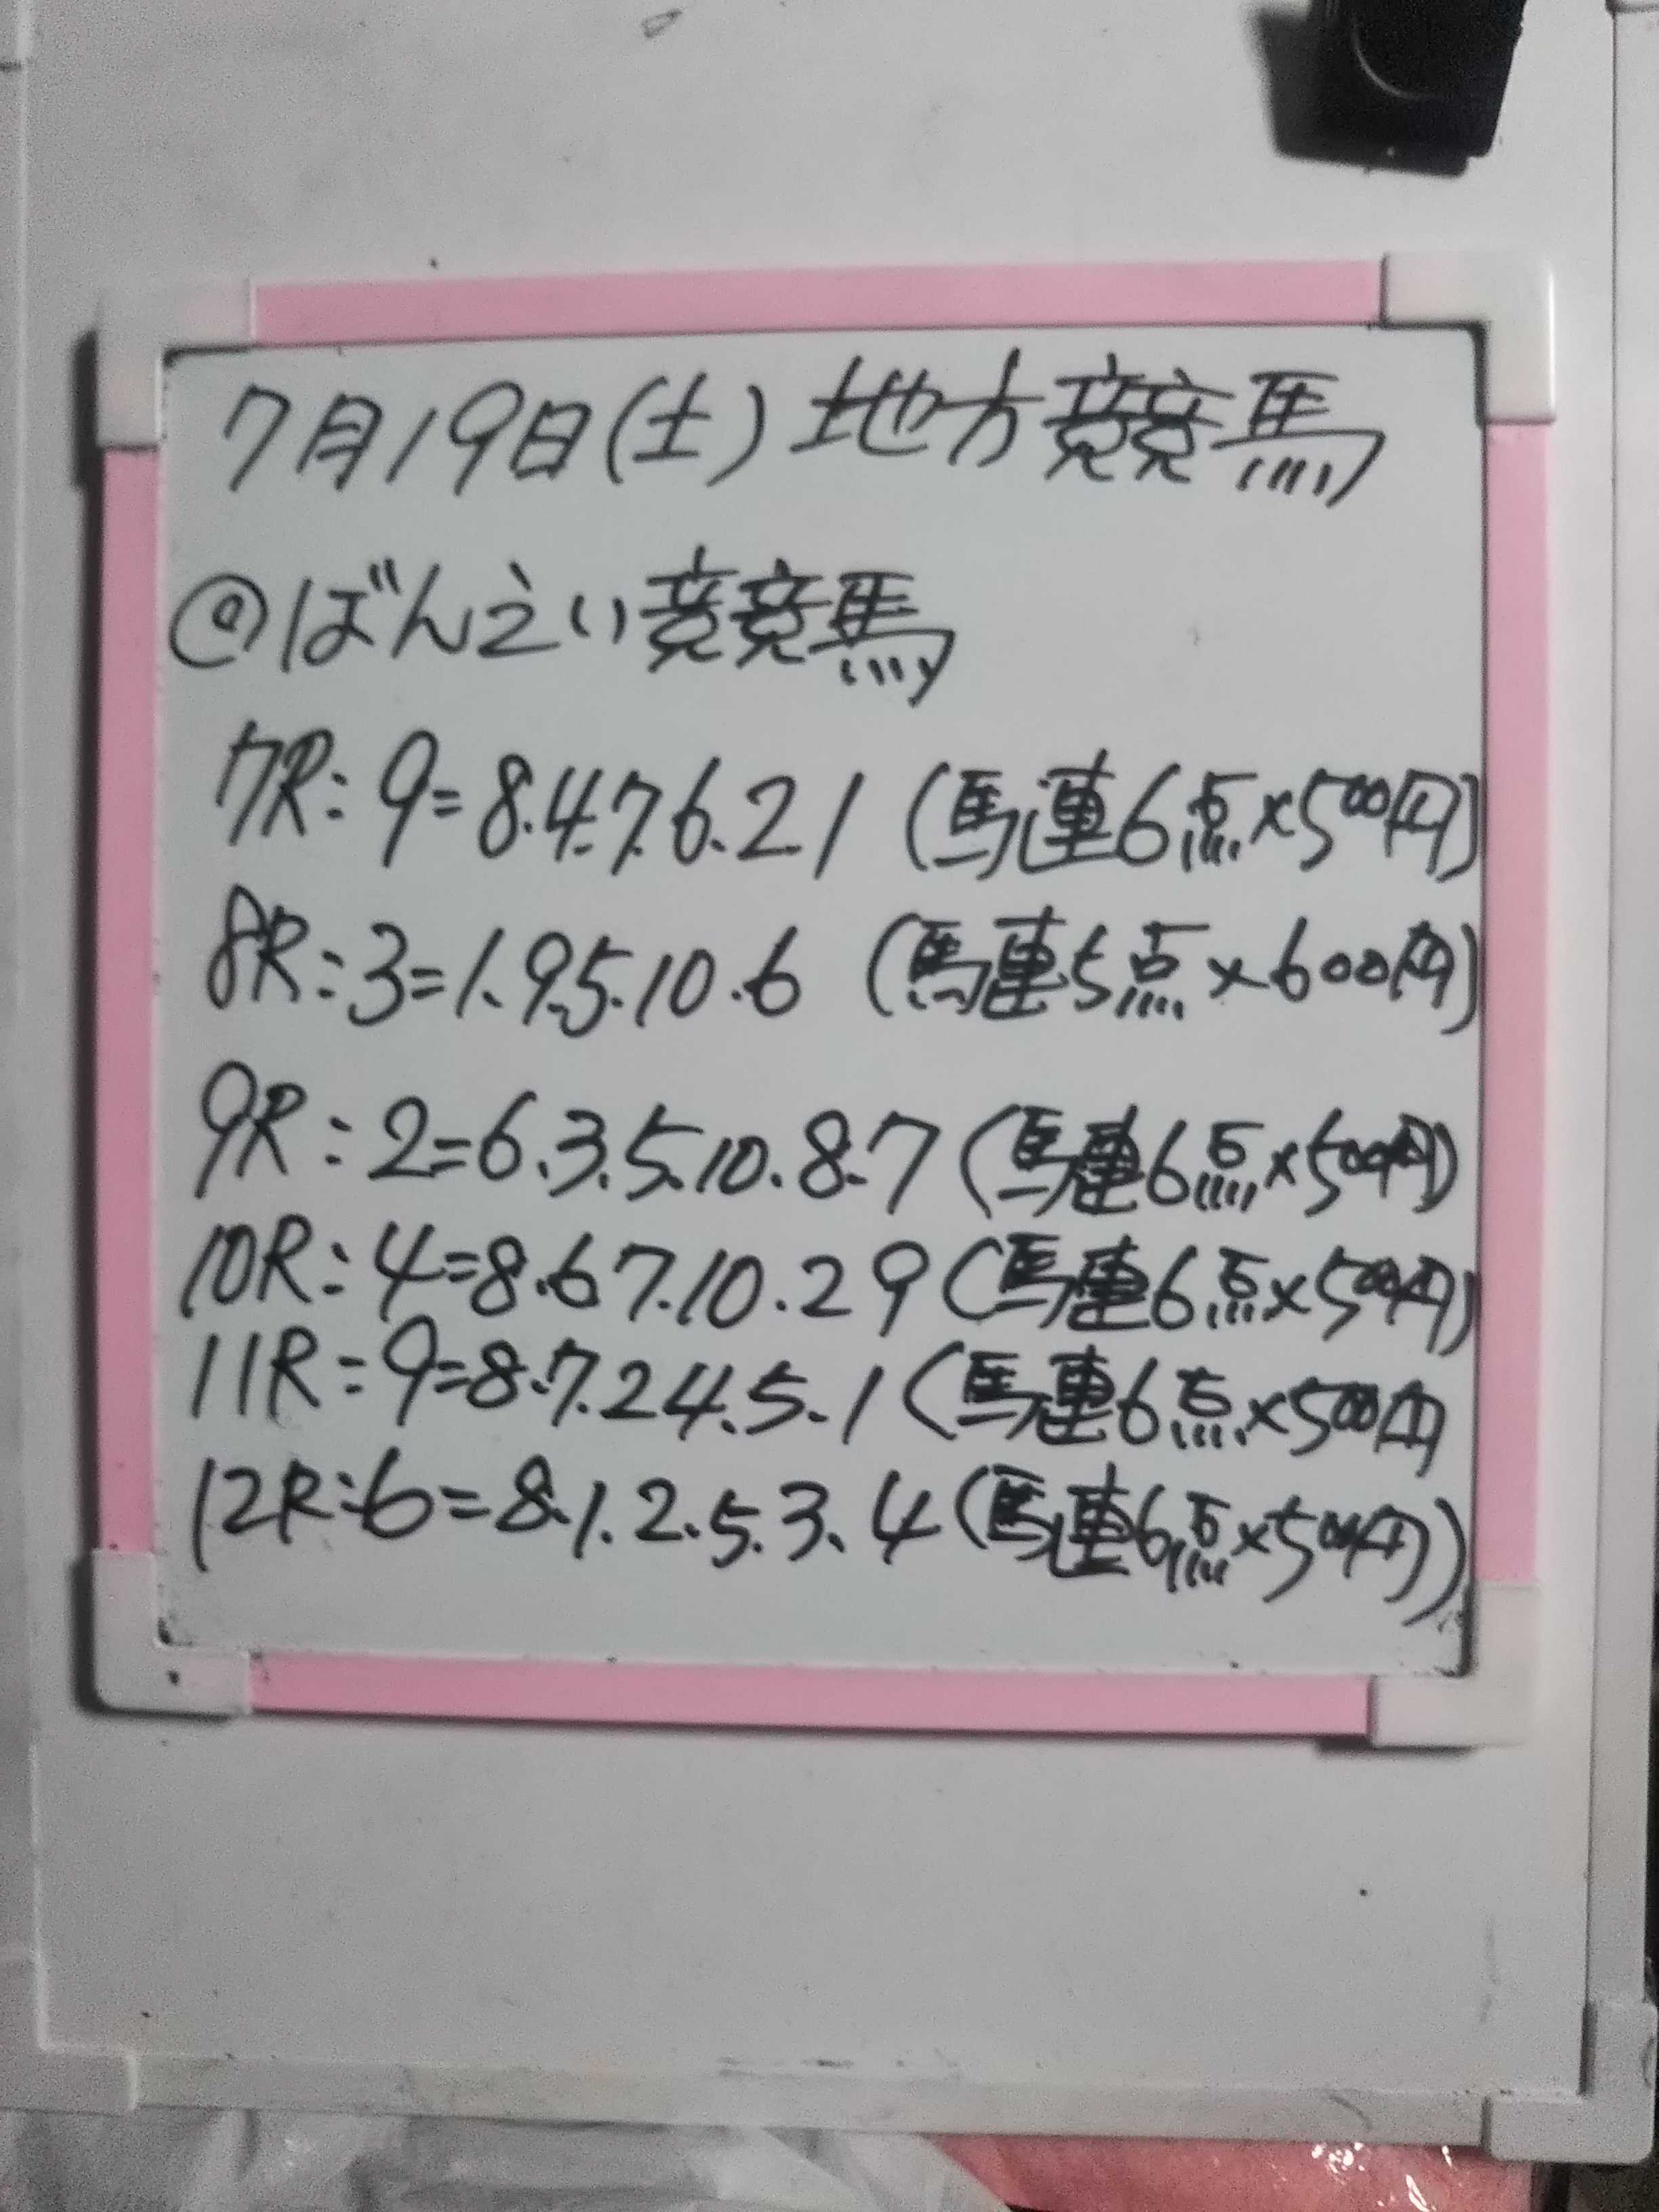 7月19日(土)地方競馬
@ばんえい競馬
7R:9=8.4.7.6.2.1(馬連6点×500円)
8R:3=1.9.5.10.6(馬連5点×600円)
9R:2=6.3.5.10.8.7(馬連6点×500円)
10R:4=8.6 7.10.2 9(馬連6点×500円)
11R:9=8.7.2 4.5.1(馬連6点×500円
12R:6=8.1.2.5.3.4(馬連6点×500円)